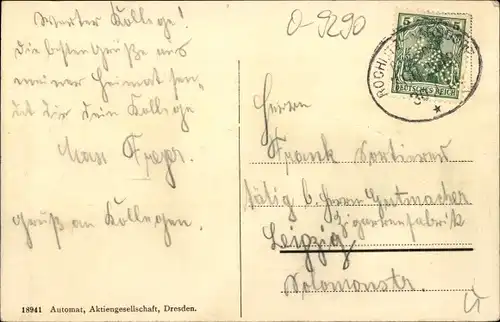 Werter Kollege!
Die besten Grüße aus
meiner Heimat sen-
det dir dein Kollege
Max
Gruß an Kollegen.
18941 Automat, Aktiengesellschaft, Dresden.
0-9290
5 5
DEUTSCHES REICH
ROCHL
Herrn
Frank Sortierer
tätig b. Herrn Gutmacher
Zigarrenfabrik
Leipzig
Salomonstr.